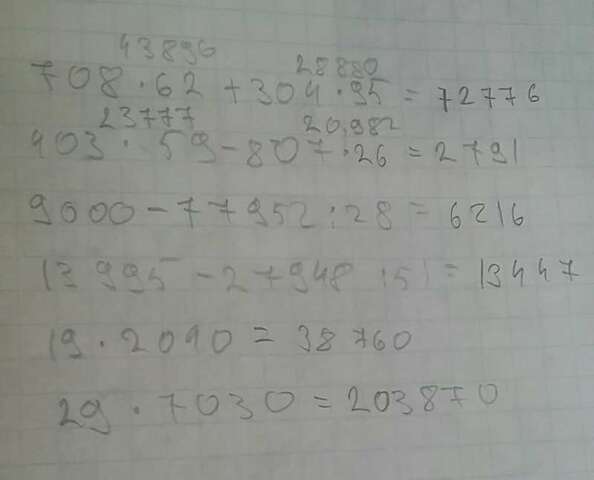 43896 28880
708·62+304·95=72776
23777 20,982
403·59-807·26=2791
9000-77952:28=6216
13995-27948:51=13447
19·2040=38760
29·7030=203870